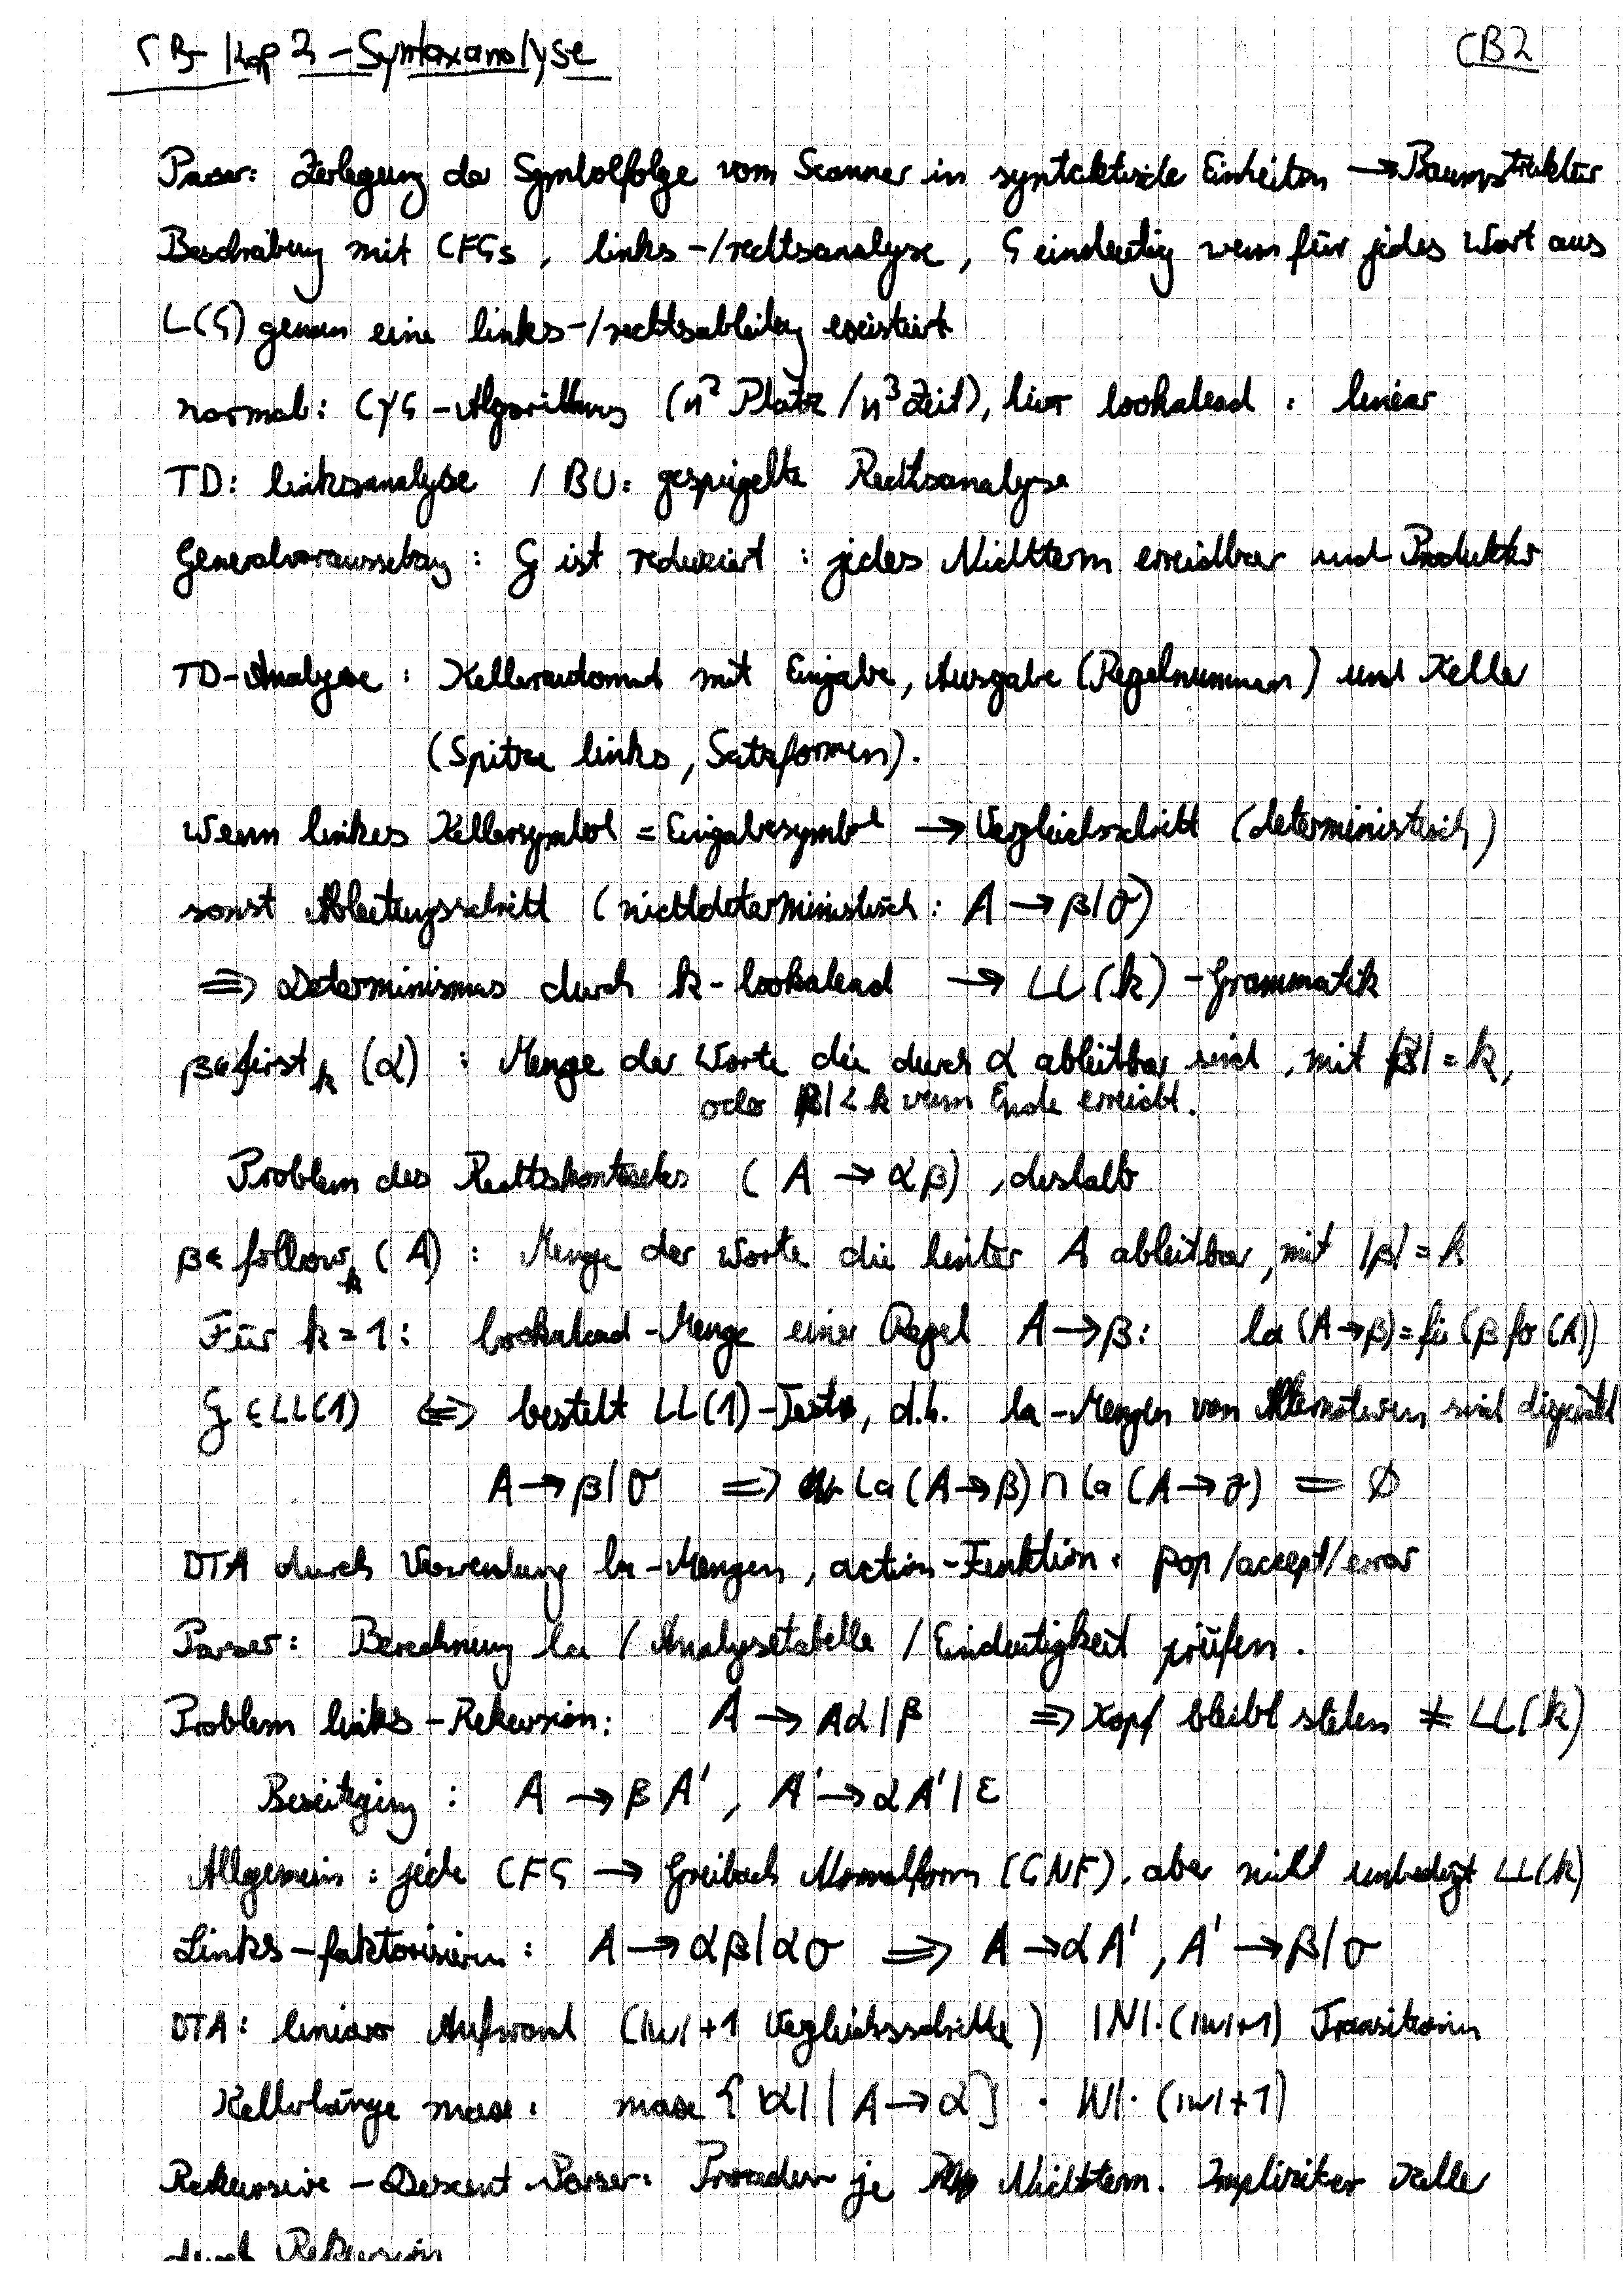 CB - Kap 2 - Syntaxanalyse CB2
Parser: Zerlegung der Symbolfolge vom Scanner in syntaktische Einheiten → Baumstruktur
Beschreibung mit CFGs, links-/rechtsanalyse, G eindeutig wenn für jedes Wort aus
L(G) genau eine links-/rechtsableitung existiert
normal: CYK-Algorithmus (n² Platz / n³ Zeit), hier lookahead: linear
TD: linksanalyse / BU: gespiegelte Rechtsanalyse
Generalvoraussetzung: G ist reduziert: jedes Nichtterm erreichbar und Produktiv
TD-Analyse: Kellerautomat mit Eingabe, Ausgabe (Regelnummern) und Keller
(Spitze links, Satzformen).
Wenn linkes Kellersymbol = Eingabesymbol → Vergleichsschritt (deterministisch)
sonst Ableitungsschritt (nichtdeterministisch: A → β|σ)
⇒ Determinismus durch k-lookahead → LL(k)-Grammatik
β∈first k (α): Menge der Worte die durch α ableitbar sind, mit |β| = k,
oder |β| < k wenn Ende erreicht.
Problem des Rechtskontexts (A → αβ), deshalb
β∈ follow k (A): Menge der Worte die hinter A ableitbar, mit |β| = k
Für k=1: lookahead-Menge einer Regel A → β: la (A→β) = fi (β fo (A))
G ∈ LL(1) ⇔ besteht LL(1)-Test, d.h. la-Mengen von Alternativen sind disjunkt
A → β|σ ⇒ La (A→β) ∩ la (A→σ) = ∅
DTA durch Verwendung la-Mengen, action-Funktion: pop/accept/error
Parser: Berechnung la / Analysetabelle / Eindeutigkeit prüfen.
Problem links-Rekursion: A → Aα|β ⇒ Kopf bleibt stehen ≠ LL(k)
Beseitigung: A → βA', A' → αA'|ε
Allgemein: jede CFG → Greibach Normalform (GNF), aber nicht unbedingt LL(k)
Links-faktorisieren: A → αβ|ασ ⇒ A → αA', A' → β|σ
DTA: linearer Aufwand (|w|+1 Vergleichsschritte) |N|·(|w|+1) Transitionen
Kellerlänge max: max {|α| | A → α} · |N|· (|w|+1)
Rekursive-Descent-Parser: Prozedur je Nichtterm. Impliziter Keller
durch Rekursion